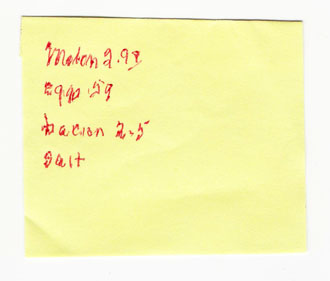 Melon 2.98
eggs .59
bacon 2.5
salt